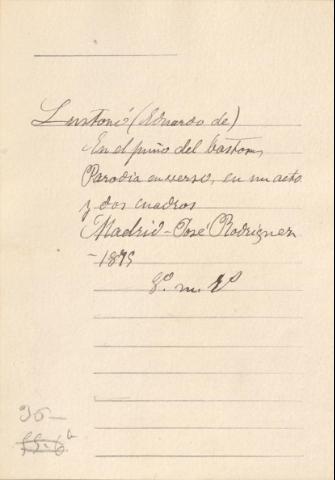 Lustonó (Eduardo de)
En el puño del baston,
Parodia en verso, en un acto
y dos cuadros
Madrid-José Rodriguez
-1875
8º. m.